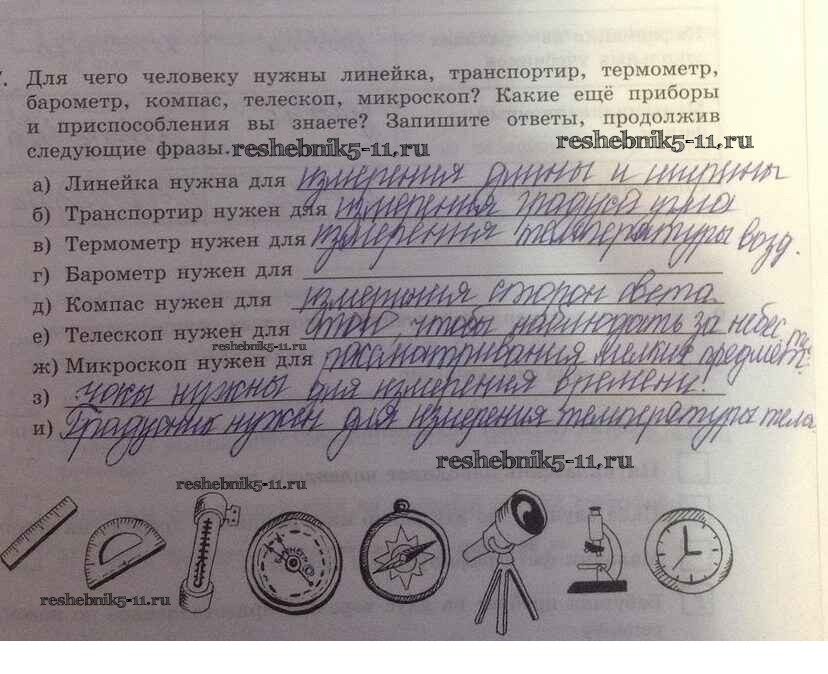 7. Для чего человеку нужны линейка, транспортир, термометр,
барометр, компас, телескоп, микроскоп? Какие ещё приборы
и приспособления вы знаете? Запишите ответы, продолжив
следующие фразы. reshebnik5-11.ru reshebnik5-11.ru
а) Линейка нужна для измерения длины и ширины
б) Транспортир нужен для измерения градуса угла
в) Термометр нужен для измерения температуры возд.
г) Барометр нужен для
д) Компас нужен для измерения сторон света
е) Телескоп нужен для того, чтобы наблюдать за небес. т.
reshebnik5-11.ru
ж) Микроскоп нужен для рассматривания мелких предмет.
з) часы нужны для измерения времени.
и) Градусник нужен для измерения температуры тела
reshebnik5-11.ru
reshebnik5-11.ru
БАРОМЕТР
reshebnik5-11.ru